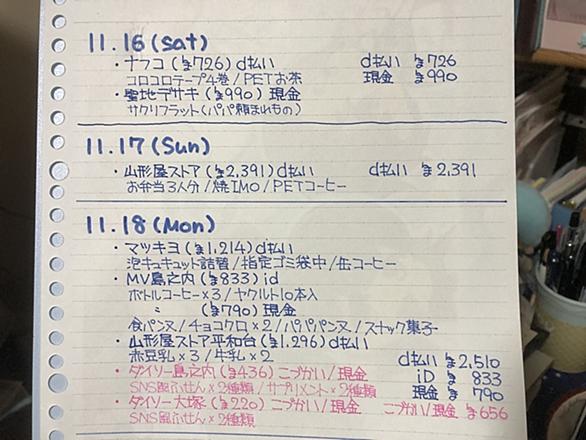 11.16 (Sat)
・ナフコ (¥726) d払い　d払い ¥726
コロコロテープ4巻/PETお茶　現金 ¥990
・聖地デサキ (¥990) 現金
サクリフラット(パパ頼まれもの)
11.17 (Sun)
・山形屋ストア (¥2,391) d払い　d払い ¥2,391
お弁当3人分/焼IMO/PETコーヒー
11.18 (Mon)
・マツキヨ (¥1,214) d払い
泡キュキュット詰替/指定ゴミ袋中/缶コーヒー
・MV島之内 (¥833) id
ボトルコーヒー×3/ヤクルト10本入
〃 (¥790) 現金
食パンヌ/チョコクロ×2/パパパンヌ/スナック菓子
・山形屋ストア平和台 (¥1,296) d払い
赤豆乳×3/牛乳×2　d払い ¥2,510
・ダイソー島之内 (¥436) こづかい/現金　iD ¥833
SNS風ふせん×2種類/サプリメント×2種類　現金 ¥790
・ダイソー大塚 (¥220) こづかい/現金　こづかい/現金 ¥656
SNS風ふせん×2種類